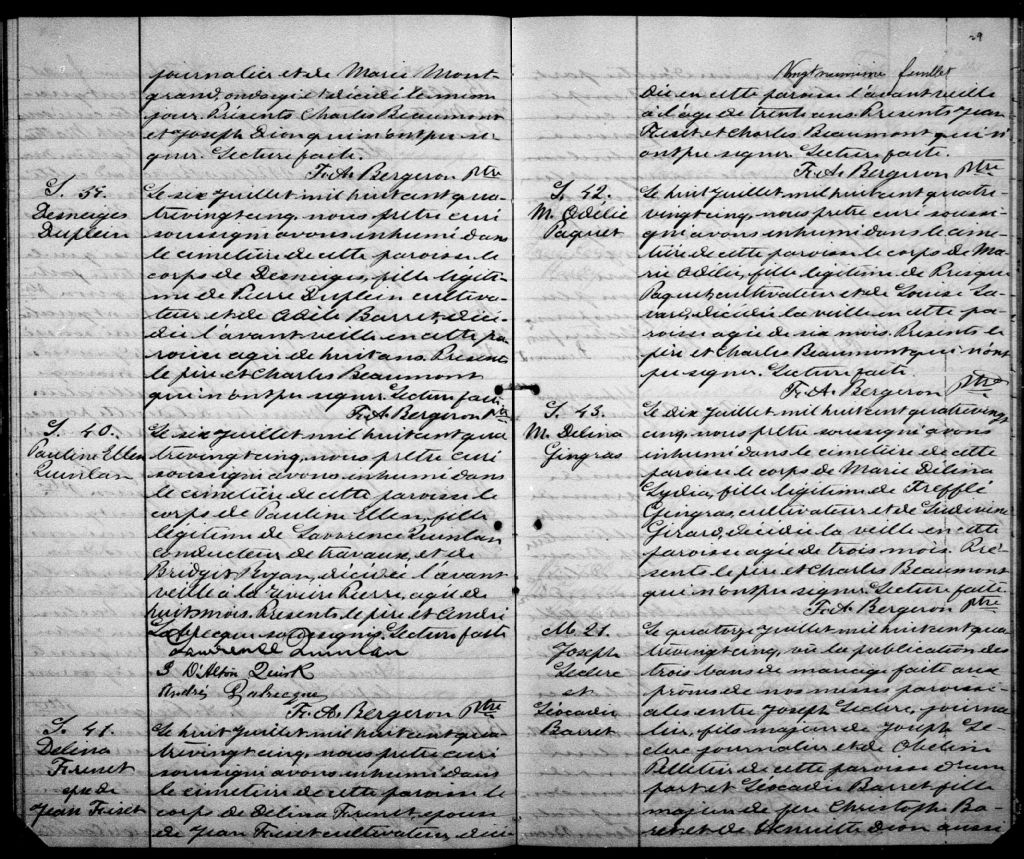 journalier et de Marie Mont-
grand, ondoyé et décédé le même
jour. Présents Charles Beaumont
et Joseph Dion qui n'ont pu si-
gner. Lecture faite.
Fr. A. Bergeron ptre
S. 39.
Desneiges
Duplein
Le six Juillet mil huit cent qua-
trevingt cinq, nous prêtre curé
soussigné avons inhumé dans
le cimetière de cette paroisse le
corps de Desneiges, fille légiti-
me de Pierre Duplein cultiva-
teur et de Adile Barret, décé-
dée l'avant veille en cette pa-
roisse agée de huit ans. Présents
le père et Charles Beaumont
qui n'ont pu signer. Lecture faite
Fr. A. Bergeron ptre
S. 40.
Pauline Ellen
Quinlan
Le six Juillet mil huit cent qua
trevingt cinq, nous prêtre curé
soussigné avons inhumé dans
le cimetière de cette paroisse le
corps de Pauline Ellen, fille
légitime de Lawrence Quinlan
conducteur de travaux, et de
Bridget Ryan, décédée l'avant
veille à la rivière Pierre, agée de
huit mois. Présents le père et André
soussignés. Lecture faite
Lawrence Quinlan
D'Alton Quirk
André
Fr. A. Bergeron ptre
S. 41.
Délina
Frenet
epse de
Jean Friset
Le huit Juillet mil huit cent qua-
trevingt cinq, nous prêtre curé
soussigné avons inhumé dans
le cimetière de cette paroisse le
corps de Délina Frenet, epouse
de Jean Friset cultivateur, décé-
29
Vingt neuvième feuillet
dée en cette paroisse l'avant veille
à l'âge de trente ans. Présents Jean
Friset et Charles Beaumont qui n'
ont pu signer. Lecture faite.
Fr. A. Bergeron ptre
S. 42.
M. Odélie
Paquet
Le huit Juillet mil huit cent quatre
vingt cinq, nous prêtre curé soussi-
gné avons inhumé dans le cime-
tière de cette paroisse le corps de Ma-
rie Odélie, fille légitime de
Paquet, cultivateur et de Louise La-
décédée la veille en cette pa-
roisse agée de six mois. Présents le
père et Charles Beaumont qui n'ont
pu signer. Lecture faite.
Fr. A. Bergeron ptre
S. 43.
M. Délina
Gingras
Le dix Juillet mil huit cent quatrevingt
cinq, nous prêtre soussigné avons
inhumé dans le cimetière de cette
paroisse le corps de Marie Délina
Lydia, fille légitime de Trefflé
Gingras, cultivateur et de Ludivine
Girard, décédée la veille en cette
paroisse agée de trois mois. Pré-
sents le père et Charles Beaumont
qui n'ont pu signer. Lecture faite
Fr. A. Bergeron ptre
M. 21.
Joseph
Leclerc
et
Léocadie
Barret
Le quatorze Juillet mil huit cent qua
trevingt cinq, vu la publication des
trois bans de mariage faite aux
prônes de nos messes paroissi-
ales entre Joseph Leclerc, journa-
lier, fils majeur de Joseph Le-
clerc journalier et de
Pelletier de cette paroisse d'une
part et Léocadie Barret fille
majeure de feu Christophe Ba-
ret et de Henriette Dion aussi